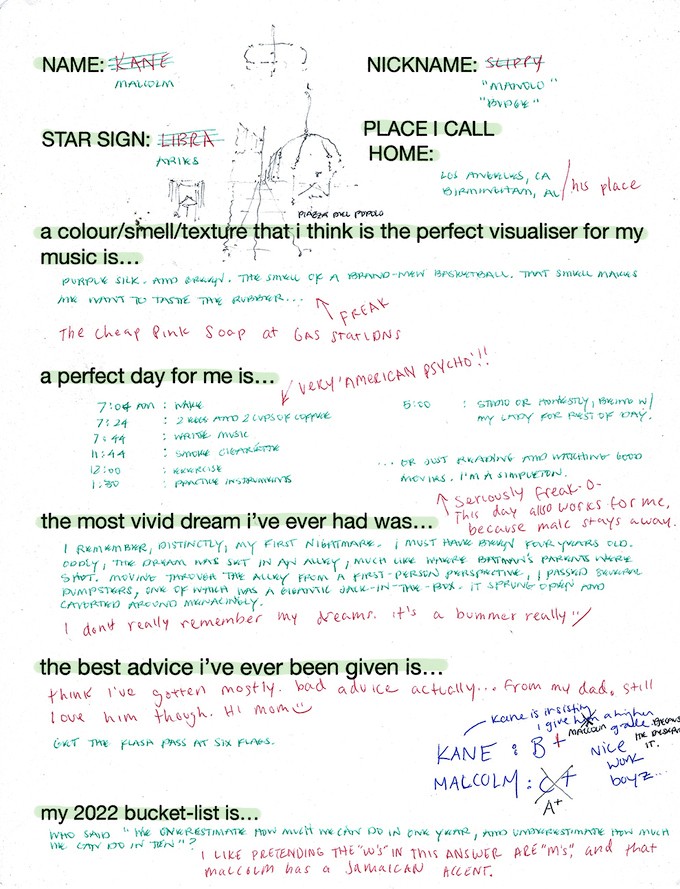 NAME: KANE
MALCOLM
NICKNAME: SLIPPY
"MANOLO"
"BUDGE"
STAR SIGN: LIBRA
ARIES
PLACE I CALL HOME:
LOS ANGELES, CA
BIRMINGHAM, AL / his place
PIAZZA DEL POPOLO
a colour/smell/texture that i think is the perfect visualiser for my
music is...
PURPLE SILK. AND GREEN. THE SMELL OF A BRAND-NEW BASKETBALL. THAT SMELL MAKES
ME WANT TO TASTE THE RUBBER...
FREAK
The Cheap Pink Soap at Gas stations
a perfect day for me is...
VERY 'AMERICAN PSYCHO'!!
7:04 AM : WAKE
7:24 : 2 EGGS AND 2 CUPS OF COFFEE
7:44 : WRITE MUSIC
11:44 : SMOKE CIGARETTE
12:00 : EXERCISE
1:30 : PRACTICE INSTRUMENTS
5:00 : STUDIO OR HONESTLY, BEING W/
MY LADY FOR REST OF DAY.
... OR JUST READING AND WATCHING GOOD
MOVIES. I'M A SIMPLETON.
Seriously Freak-O-
This day also works for me,
because malc stays away.
the most vivid dream i've ever had was...
I REMEMBER, DISTINCTLY, MY FIRST NIGHTMARE. I MUST HAVE BEEN FOUR YEARS OLD.
ODDLY, THE DREAM WAS SET IN AN ALLEY, MUCH LIKE WHERE BATMAN'S PARENTS WERE
SHOT. MOVING THROUGH THE ALLEY FROM A FIRST-PERSON PERSPECTIVE, I PASSED SEVERAL
DUMPSTERS, ONE OF WHICH WAS A GIGANTIC JACK-IN-THE-BOX. IT SPRUNG OPEN AND
CAVORTED AROUND MENACINGLY.
I don't really remember my dreams. it's a bummer really
the best advice i've ever been given is...
think I've gotten mostly. bad advice actually... From my dad, still
love him though. Hi mom
GET THE FLASH PASS AT SIX FLAGS.
Kane is insisting
I give him a higher
MALCOLM grade. BECAUSE
HE DESERVES
IT.
KANE : B+
MALCOLM : C+
A+
NICE
WORK
boyz...
my 2022 bucket-list is...
WHO SAID "WE OVERESTIMATE HOW MUCH WE CAN DO IN ONE YEAR, AND UNDERESTIMATE HOW MUCH
WE CAN DO IN TEN"?
I LIKE PRETENDING THE "W'S" IN THIS ANSWER ARE "M'S", and that
malcolm has a JAMAICAN ACCENT.